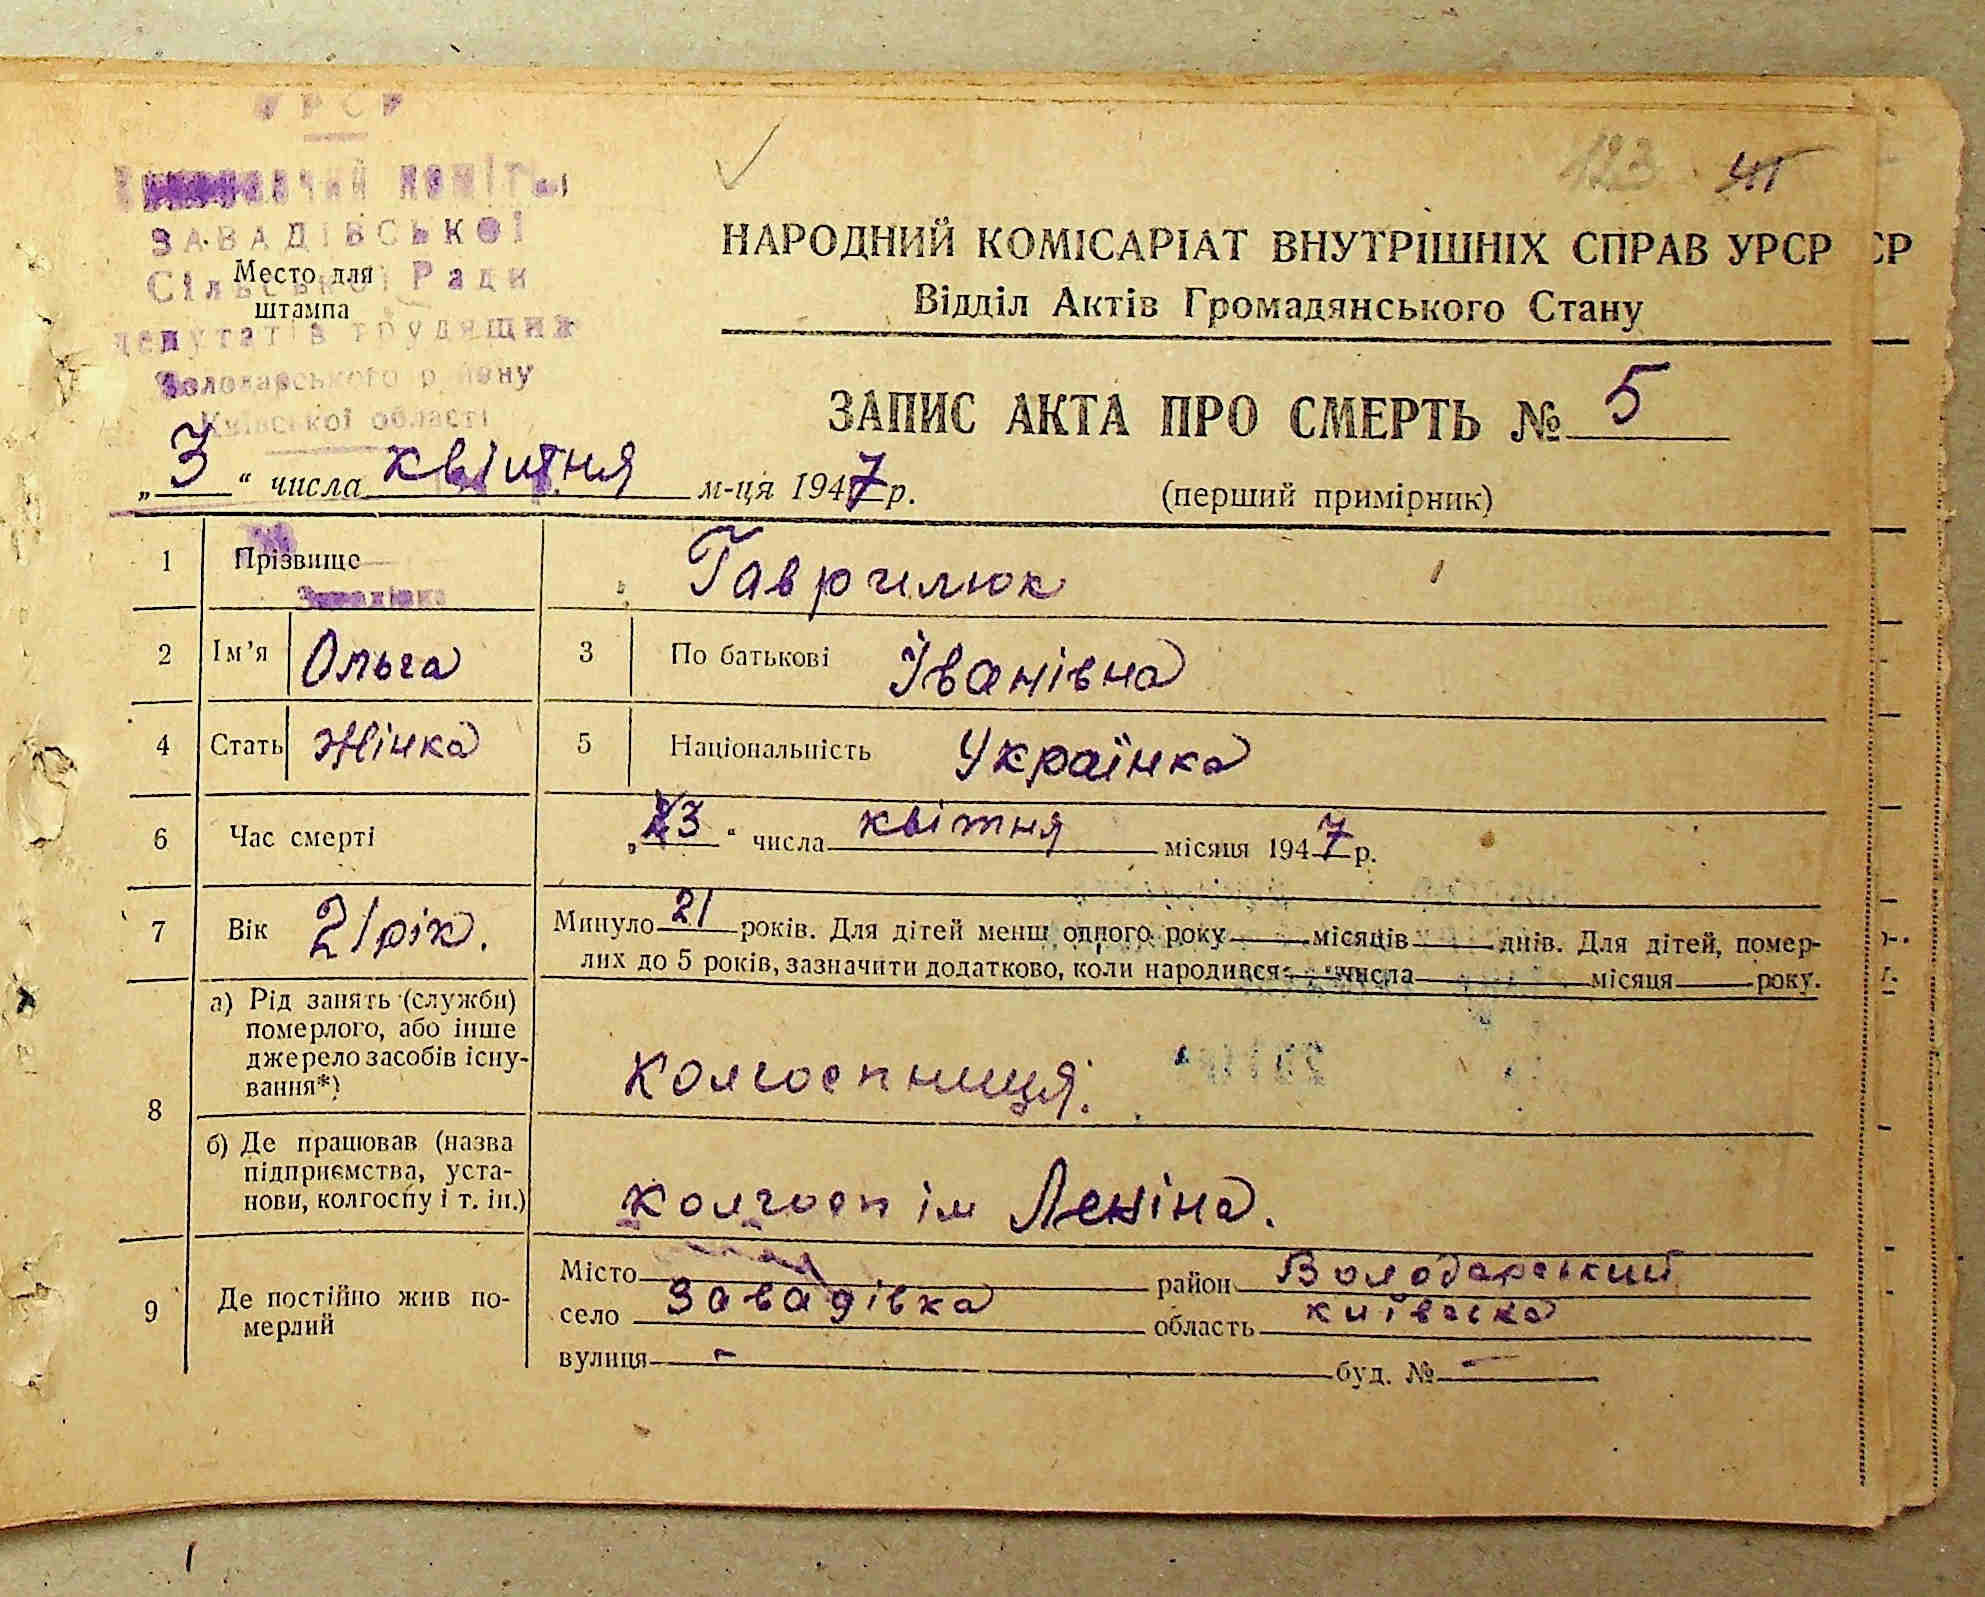 УРСР
Виконавчий комітет
ЗАВАДІВСЬКОЇ
Сільської Ради
депутатів трудящих
Володарського району
Київської області
Место для
штампа
123
НАРОДНИЙ КОМІСАРІАТ ВНУТРІШНІХ СПРАВ УРСР
СР
Відділ Актів Громадянського Стану
ЗАПИС АКТА ПРО СМЕРТЬ № 5
„3“ числа квітня м-ця 1947 р.
(перший примірник)
1 Прізвище Гаврилюк
Завадівка
2 Ім’я Ольга 3 По батькові Іванівна
4 Стать Жінка 5 Національність Українка
6 Час смерті „3“ числа квітня місяця 1947 р.
7 Вік 21 рік. Минуло 21 років. Для дітей менш одного року місяців днів. Для дітей, помер-
лих до 5 років, зазначити додатково, коли народився: числа місяця року.
8
а) Рід занять (служби)
померлого, або інше
джерело засобів існу-
вання*)
Колгоспниця.
б) Де працював (назва
підприємства, уста-
нови, колгоспу і т. ін.)
колгосп ім Леніна.
9 Де постійно жив по-
мерлий
Місто район Володарський
село Завадівка область київська
вулиця - буд. № -